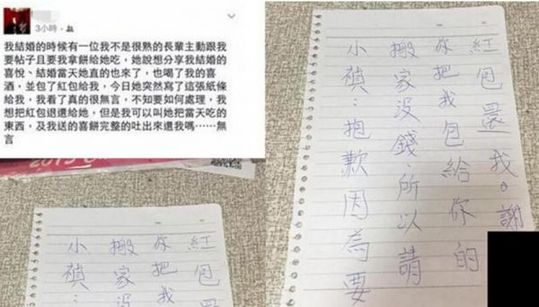 3小時
我結婚的時候有一位我不是很熟的長輩主動跟我
要帖子且要我拿餅給她吃，她說想分享我結婚的
喜悅、結婚當天她真的也來了，也喝了我的喜
酒，並包了紅包給我，今日她突然寫了這張紙條
給我，我看了真的很無言，不知要如何處理，我
想把紅包退還給她，但是我可以叫她把當天吃的
東西，及我送的喜餅完整的吐出來還我嗎……無
言
2015
小禎：抱歉因為要
搬家沒錢，所以請
你把我包給你的
紅包還我。謝
小禎：抱歉因為要
搬家沒
你把我
紅包還